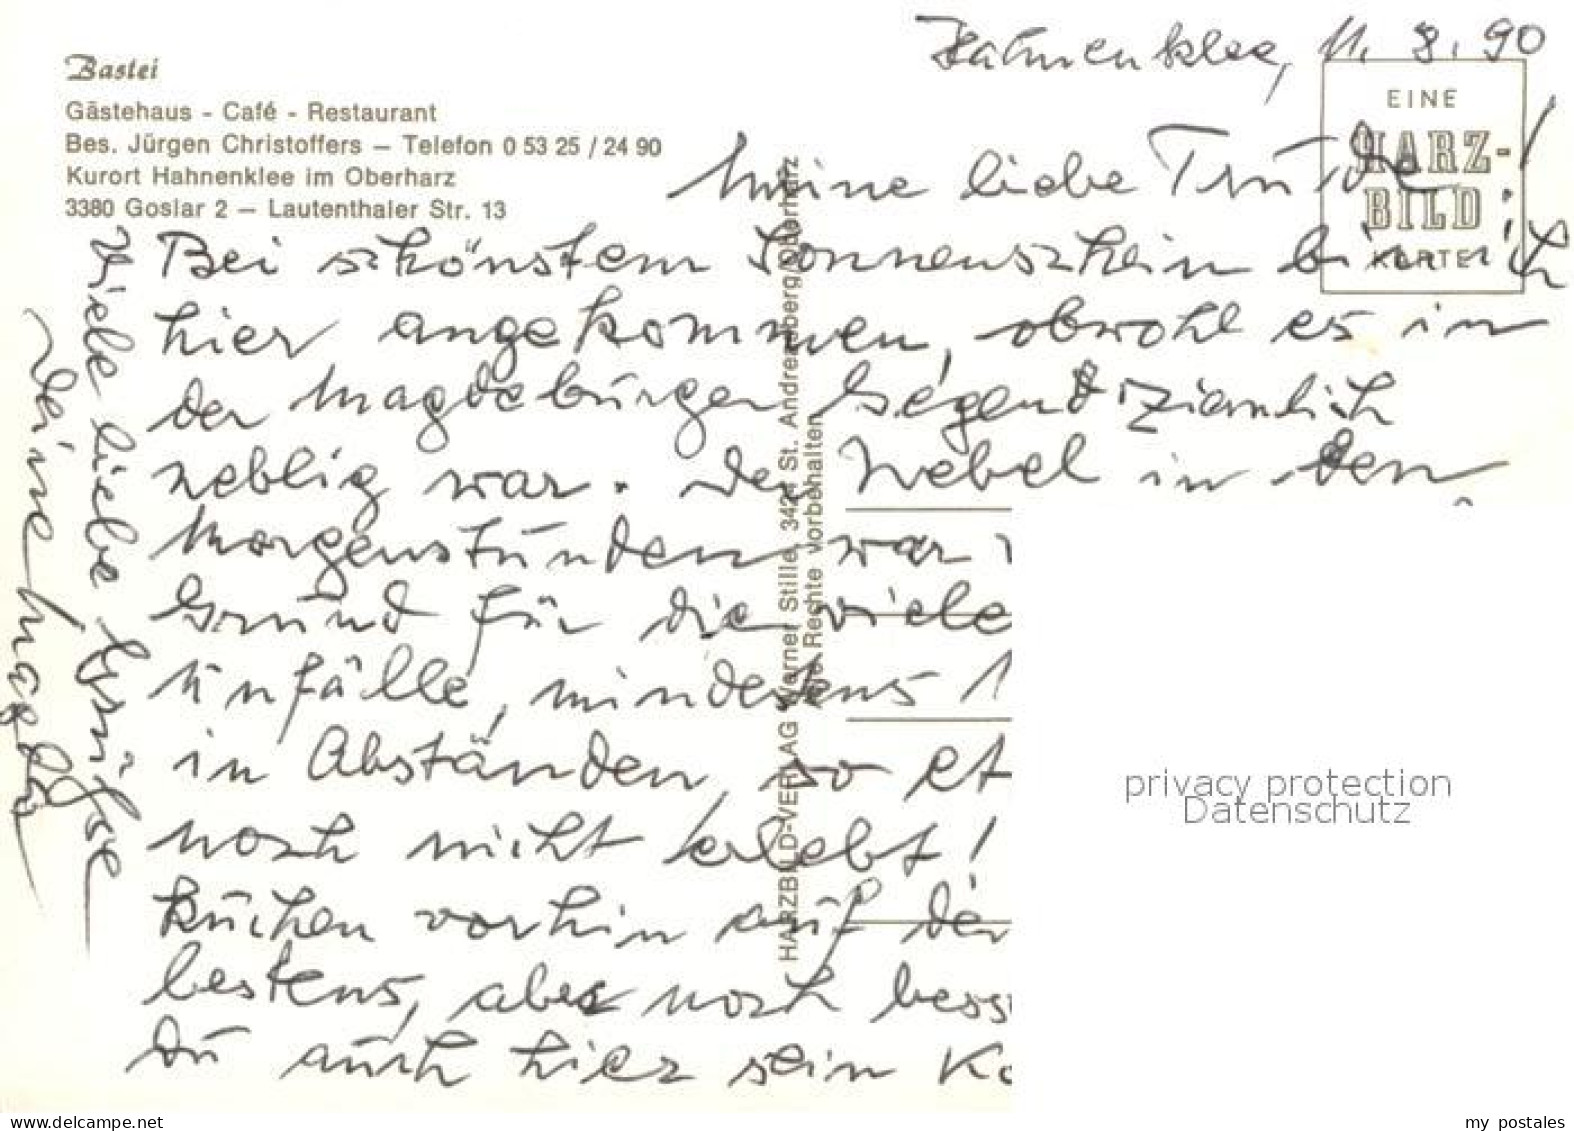 Bastei
Gästehaus - Café - Restaurant
Bes. Jürgen Christoffers — Telefon 0 53 25 / 24 90
Kurort Hahnenklee im Oberharz
3380 Goslar 2 — Lautenthaler Str. 13
Hahnenklee, 11. 8. 90
EINE
HARZ-
BILD
KARTE
Meine liebe Trude!
Bei schönstem Sonnenschein bin ich
hier angekommen, obwohl es in
der Magdeburger Gegend ziemlich
neblig war. Der Nebel in den
Morgenstunden war
Grund für die viele
Unfälle, mindestens 1
in Abständen, so et
noch nicht erlebt!
Kuchen vorhin auf der
bestens, aber noch bess
Du auch hier sein Ko
Viele liebe Grüsse
Deine Magda
HARZBILD-VERLAG Werner Stille, 3424 St. Andreasberg/Oberharz
Rechte vorbehalten
privacy protection
Datenschutz
www.ansichtskartenversand.com
my postales